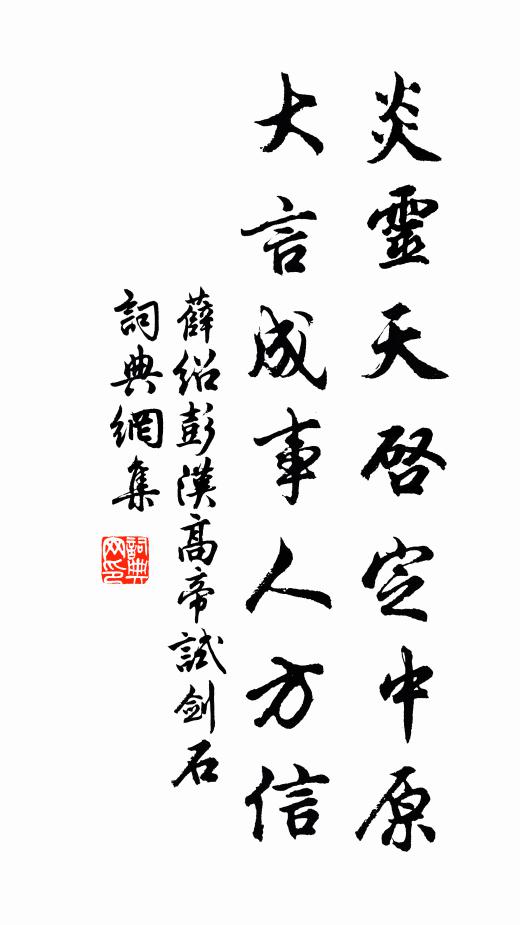 炎靈天啓定中原
大言成事人方信
薛紹彭漢高帝試劍石
詞典網集
詞典網印